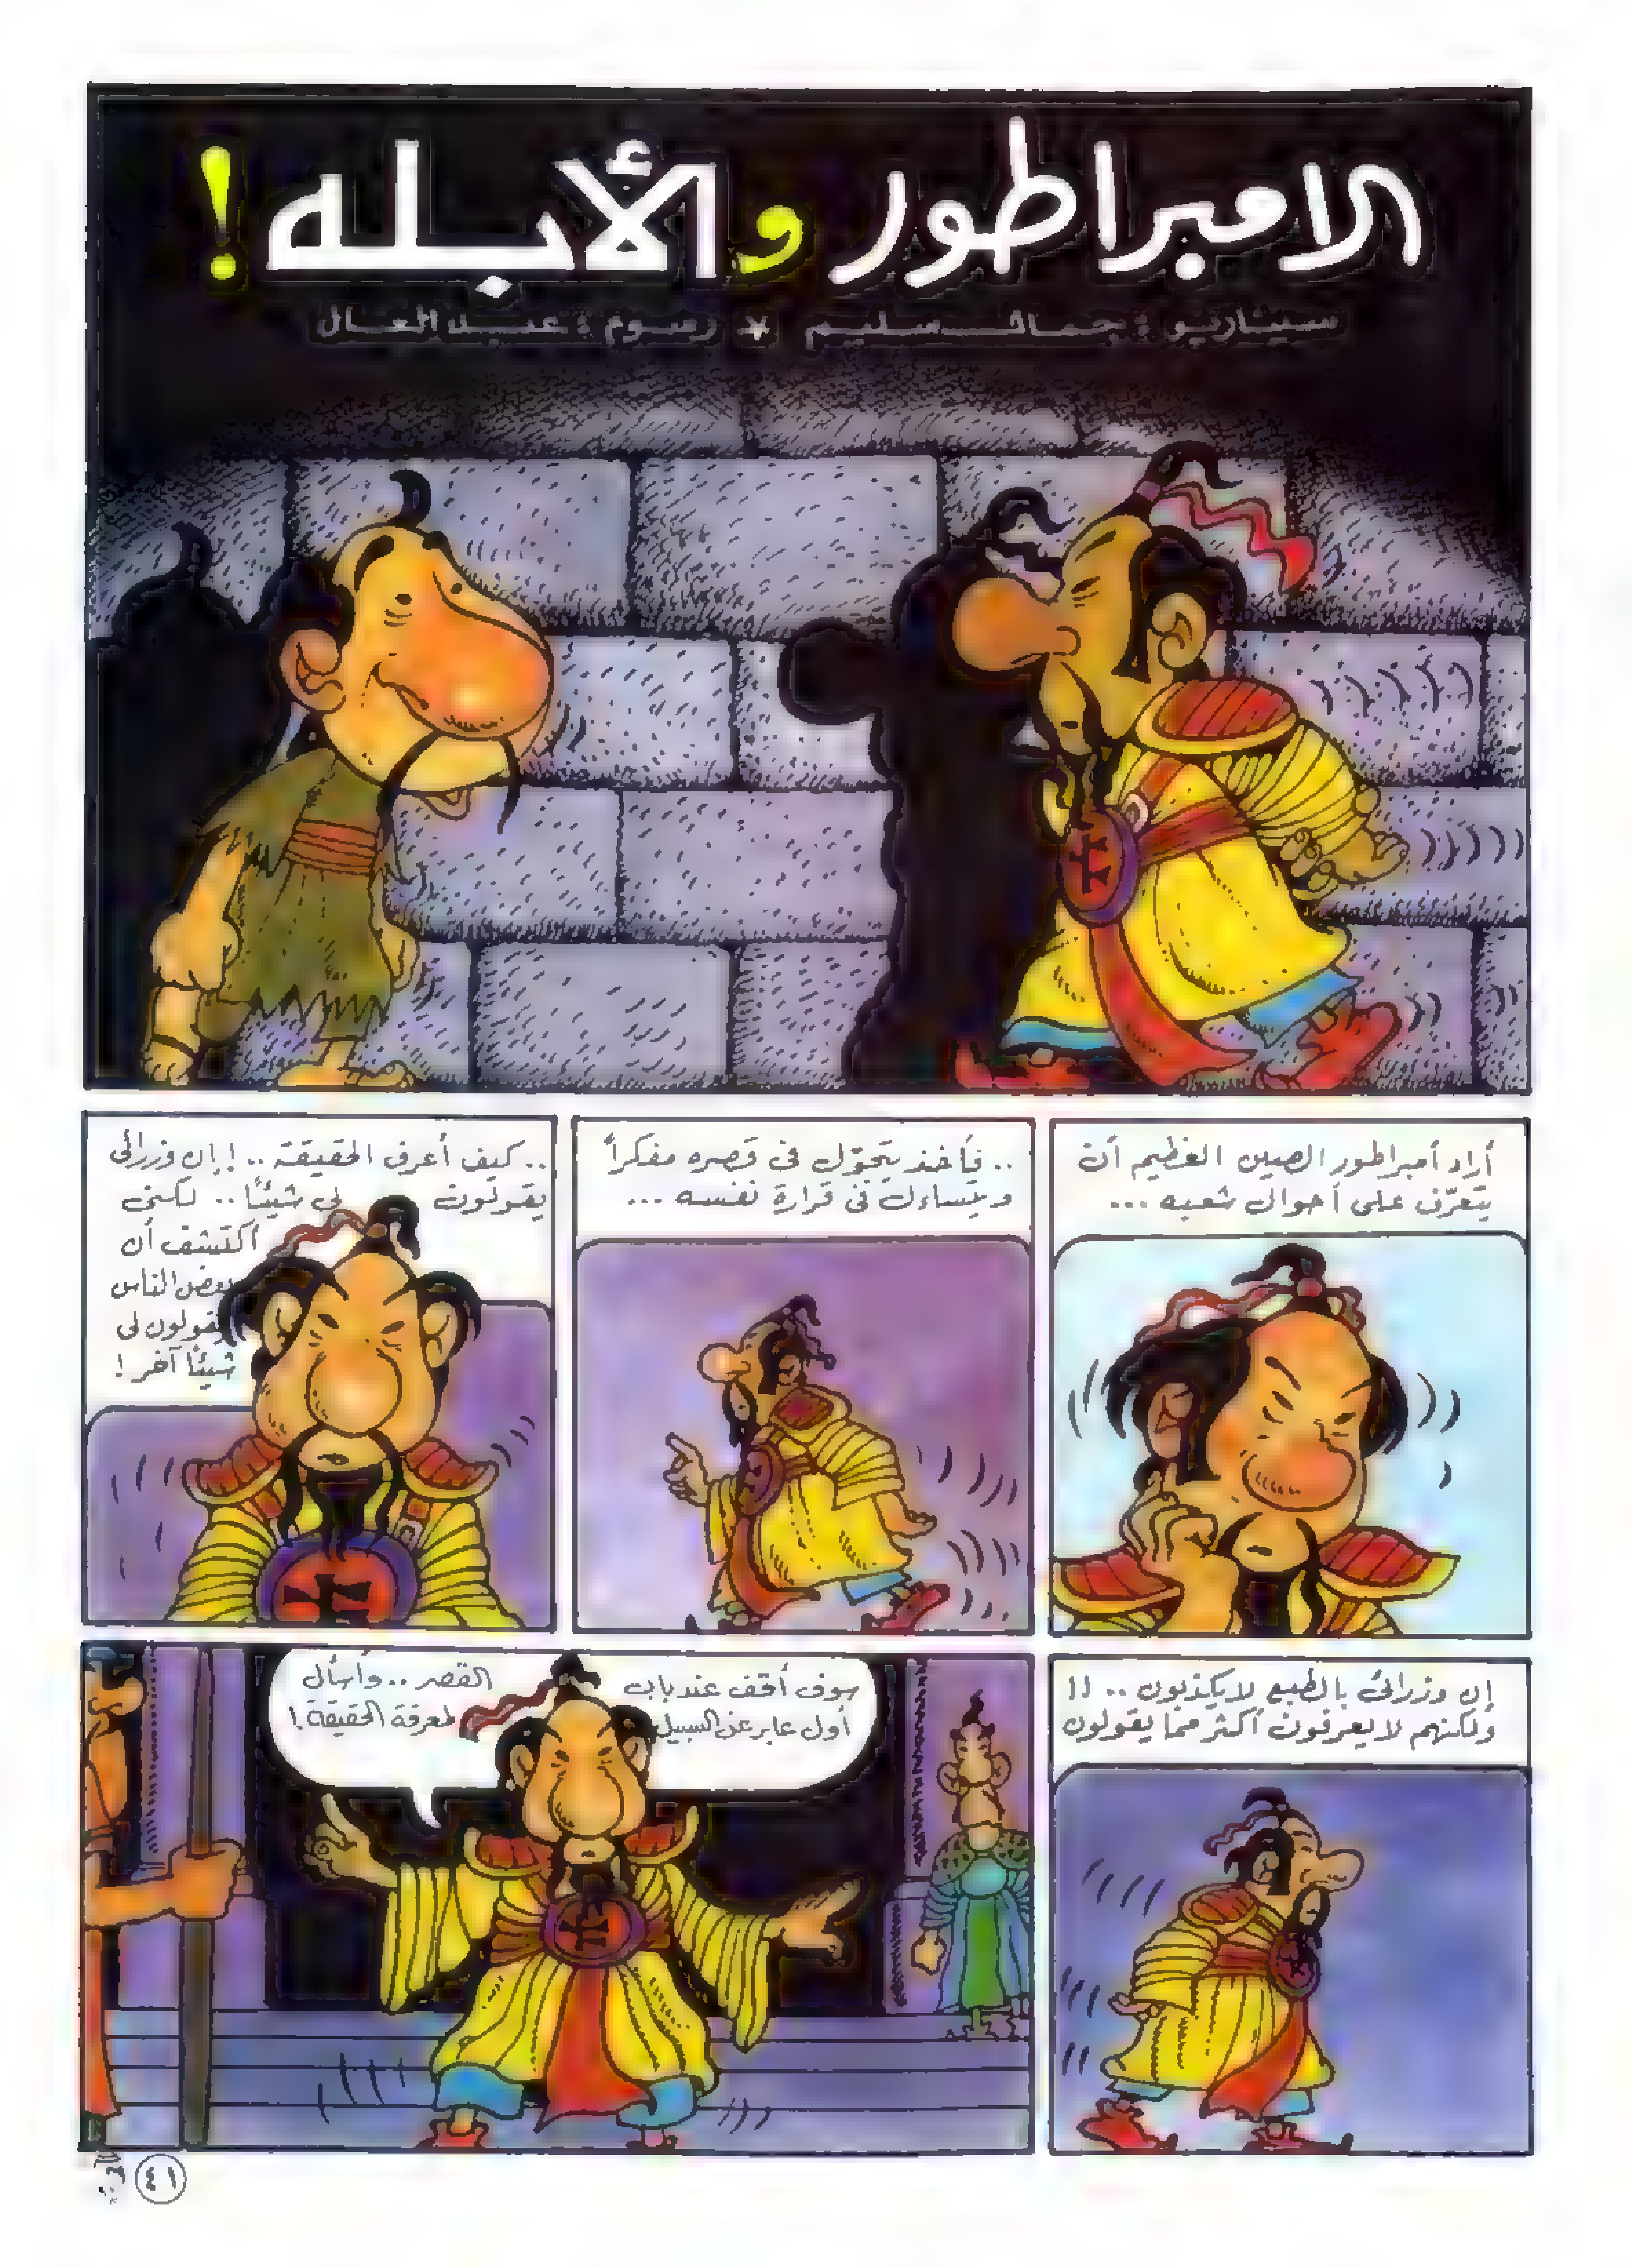 الامبراطور والأبله !
سيناريو : جمال سليم * رسوم : عبد العال
أراد أمبراطور الصين العظيم أن
يتعرّف على أحوال شعبه ...
.. فأخذ يتجوّل فى قصره مفكراً
ويتساءل فى قرارة نفسه ...
.. كيف أعرف الحقيقة .. ! إن وزرائى
يقولون لى شيئاً .. لكنى
أكتشف أن
بعض الناس
يقولون لى
شيئاً آخر !
إن وزرائى بالطبع لا يكذبون .. !!
ولكنهم لا يعرفون أكثر مما يقولون
سوف أقف عند باب القصر .. وأسأل
أول عابر عن السبيل لمعرفة الحقيقة !
٤١